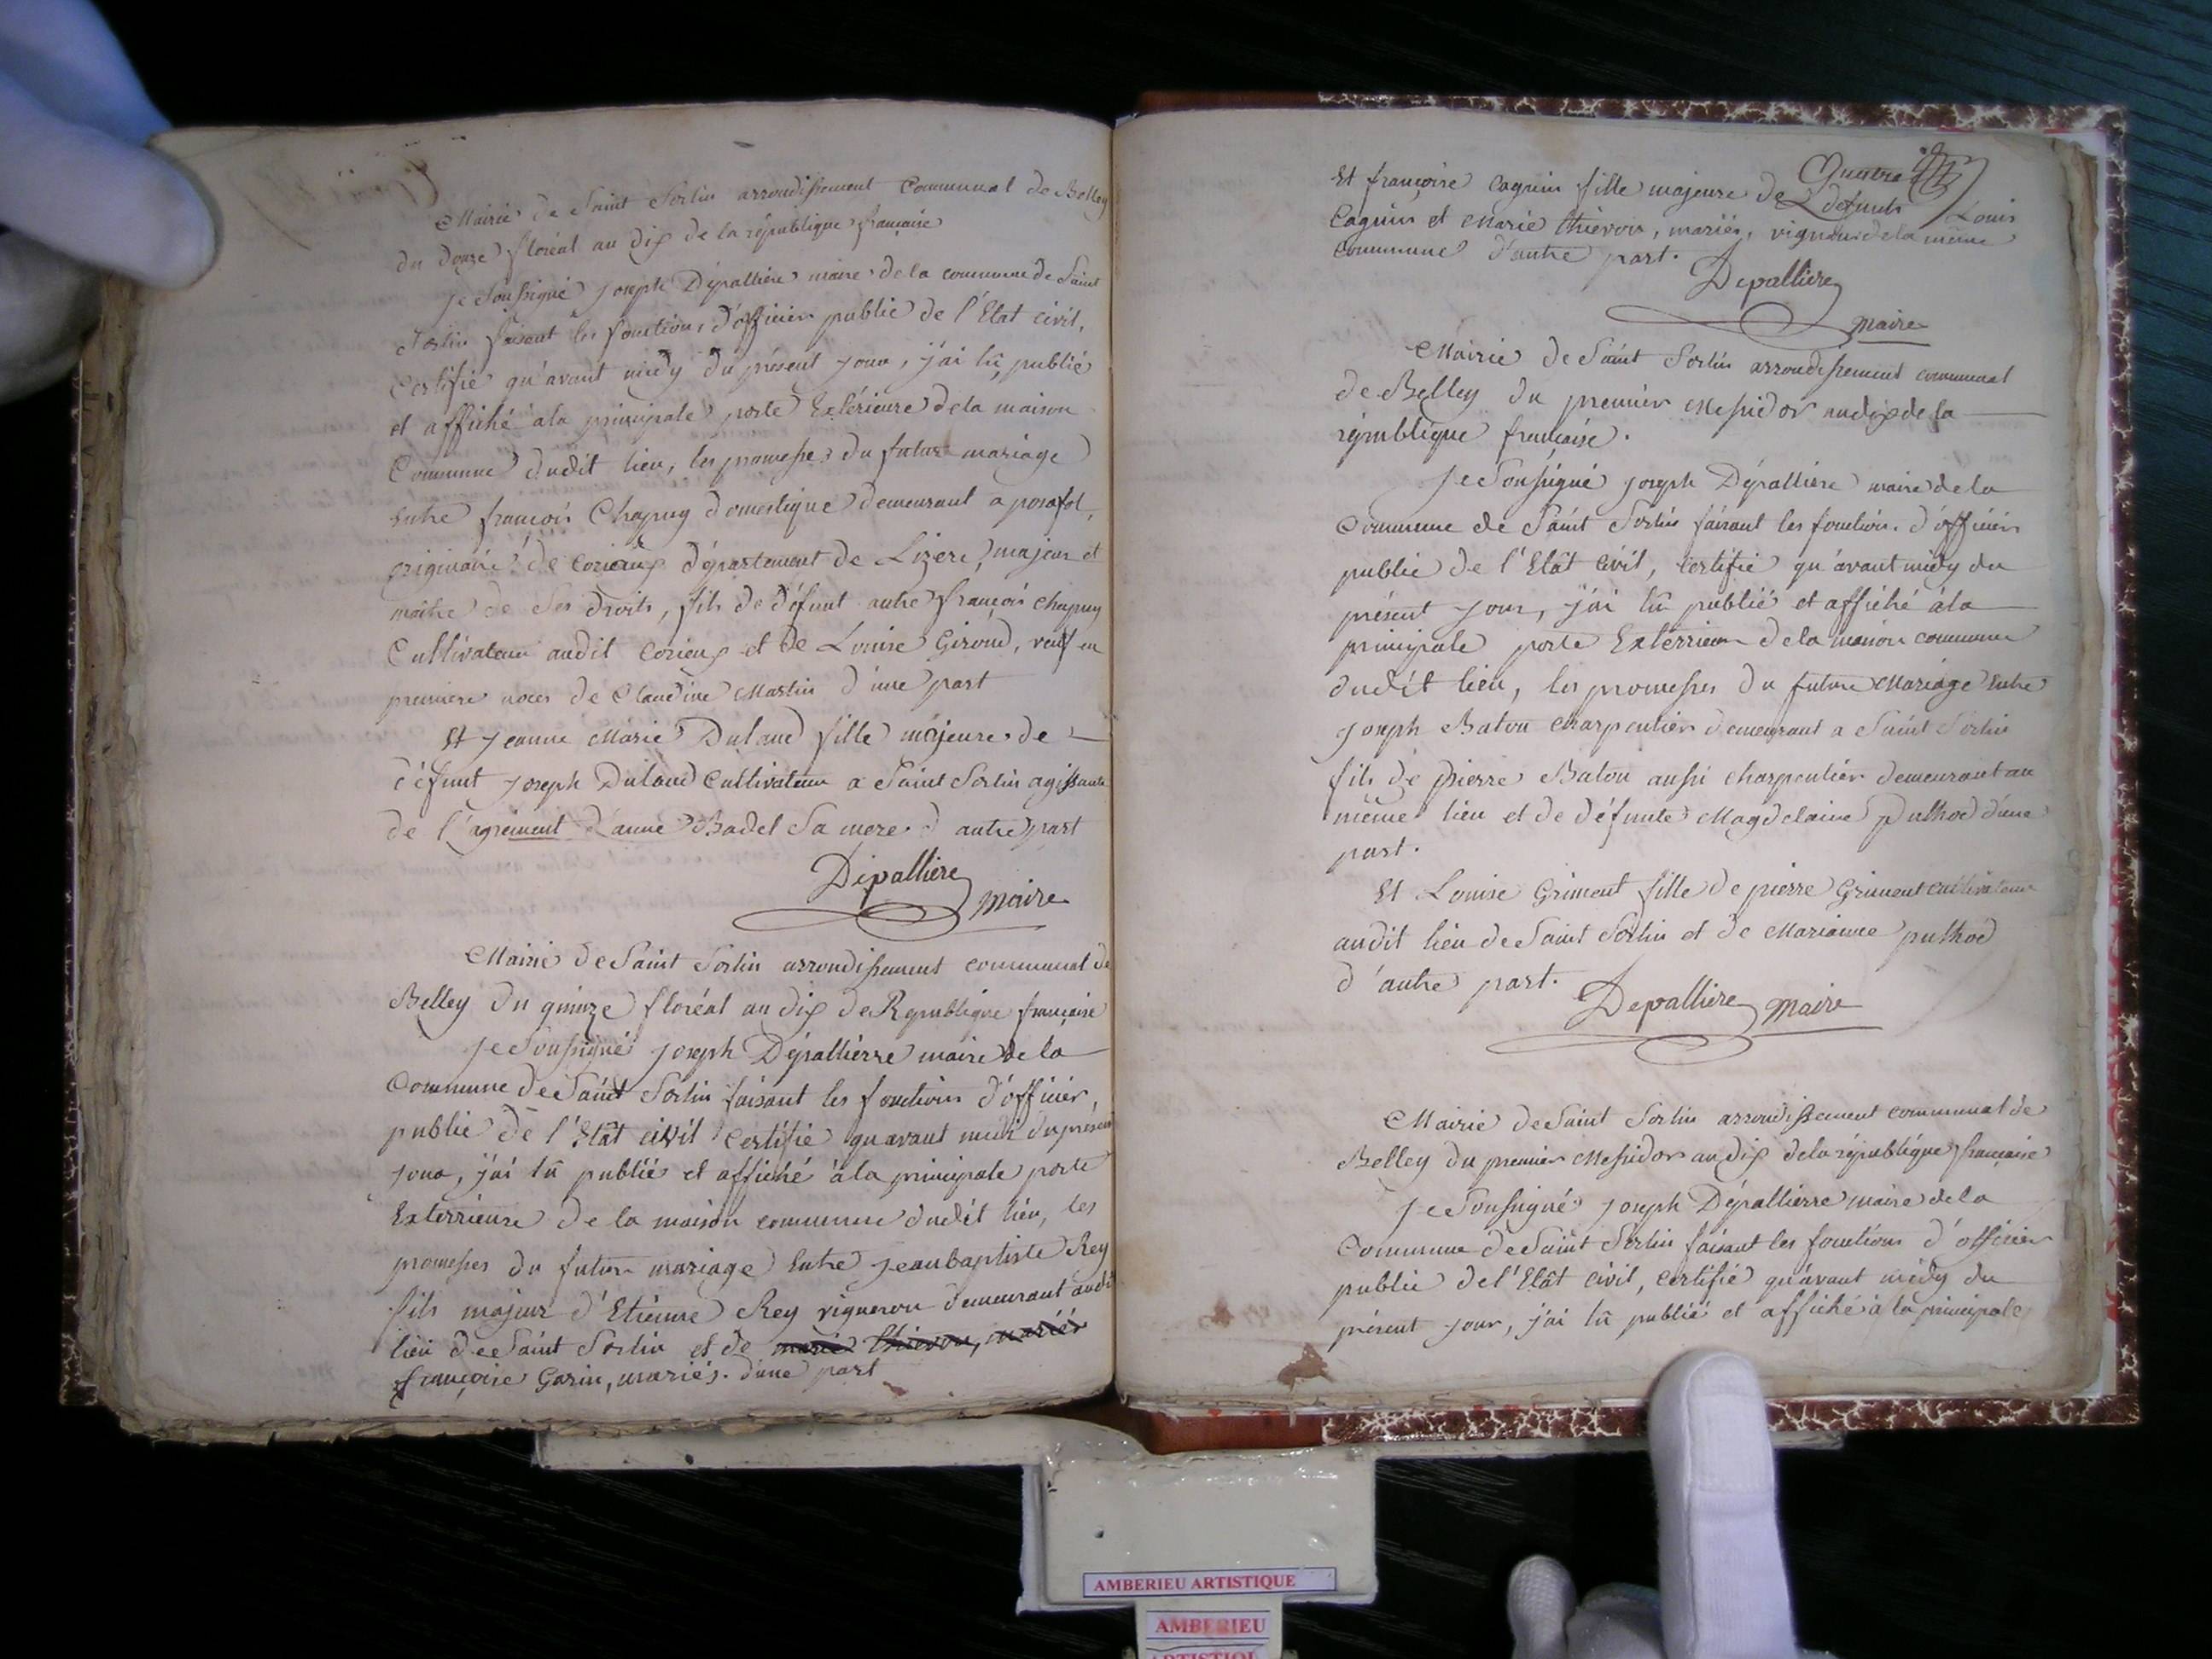 Mairie de Saint Sorlin arrondissement Communal de Belley
du douze floréal an dix de la république française
Je Soussigné joseph Dépallière maire de la commune de Saint
Sorlin faisant les fonctions d'officier public de l'Etat civil,
Certifie qu'avant midy du présent jour, j'ai lû, publié
et affiché à la principale porte Extérieure de la maison
Commune dudit lieu, les promesses du futur mariage
Entre françois Chapuy domestique demeurant a posafol,
originaire de Corieux département de Lizere, majeur et
maitre de Ses droits, fils de défunt autre françois chapuy
Cultivateur audit Corieux et de Louise Giroud, veuf en
premiere noces de Claudine Martin d'une part
Et Jeanne Marie Duland fille majeure de
défunt joseph Duland Cultivateur a Saint Sorlin agissante
de l'agrément d'anne Badel Sa mere d'autre part
Depalliere
maire
Mairie de Saint Sorlin arrondissement communal de
Belley du quinze floréal an dix de République française
Je Soussigné joseph Dépallierre maire de la
Commune de Saint Sorlin faisant les fonctions d'officier,
public de l'Etât civil certifie qu'avant midi du présent
jour, j'ai lû publié et affiché à la principale porte
Exterrieure de la maison commune dudit lieu, les
promesses du futur mariage Entre jeanbaptiste Rey
fils majeur d'Etienne Rey vigneron demeurant audit
lieu de Saint Sorlin et de marie thievon, mariés
françoise Garin, mariés. d'une part
Quatre
Et françoise Coquin fille majeure de défunts Louis
Coquin et Marie thievon, mariés, vigneron de la même
Commune d'autre part.
Depalliere
maire
Mairie de Saint Sorlin arrondissement communal
de Belley du premier Messidor an dix de la
république française.
Je Soussigné joseph Dépallière maire de la
Commune de Saint Sorlin faisant les fonctions d'officier
public de l'Etât civil, certifie qu'avant midy du
présent jour, j'ai lû publié et affiché à la
principale porte Exterrieure de la maison commune
dudit lieu, les promesses du future Mariage Entre
joseph Baton charpentier demeurant a Saint Sorlin
fils de pierre Baton aussi charpentier demeurant au
même lieu et de défunte Magdelaine puthod d'une
part.
Et Louise Griment fille de pierre Griment cultivateur
audit lieu de Saint Sorlin et de Marianne puthod
d'autre part.
Depalliere maire
Mairie de Saint Sorlin arrondissement communal de
Belley du premier Messidor an dix de la république française
Je Soussigné joseph Dépallierre maire de la
Commune de Saint Sorlin faisant les fonctions d'officier
public de l'Etât civil, certifie qu'avant midy du
présent jour, j'ai lû publié et affiché à la principale
AMBERIEU ARTISTIQUE
AMBERIEU
ARTISTIQUE